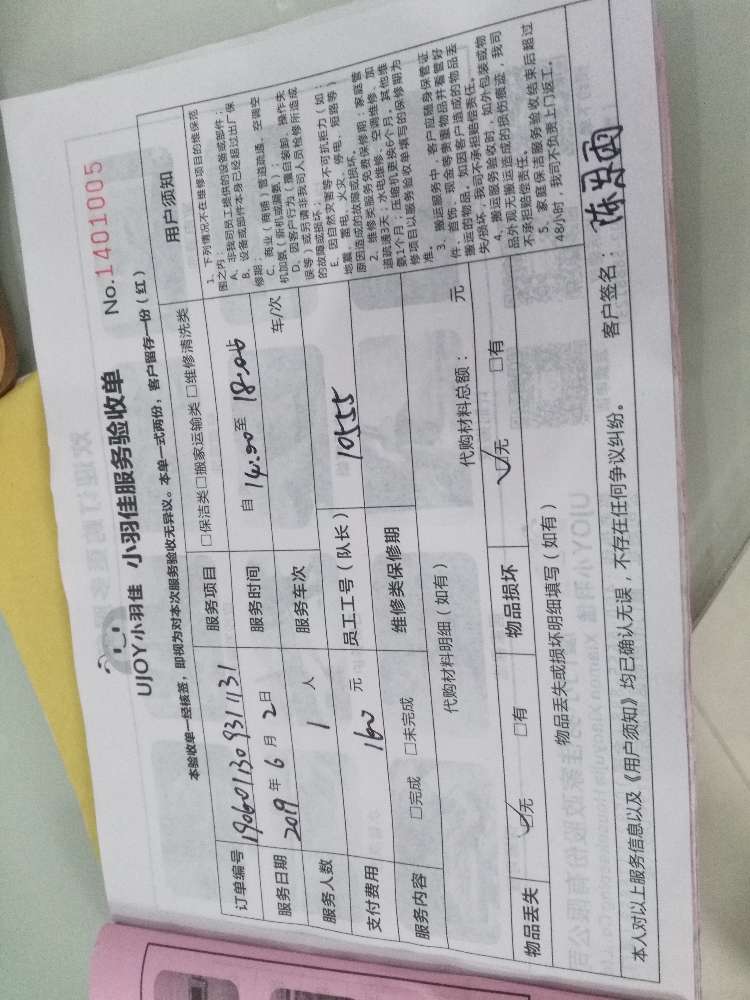 UJOY小羽佳 小羽佳服务验收单 No.1401005
本验收单一经核签，即视为对本次服务验收无异议。本单一式两份，客户留存一份（红）
订单编号 190601130931131 服务项目 □保洁类□搬家运输类 □维修清洗类 用户须知
服务日期 2019 年 6 月 2 日 服务时间 自 14:00 至 18:06
服务人数 1 人 服务车次 车/次
支付费用 160 元 员工工号（队长） 10555
服务内容 □完成 □未完成 维修类保修期
代购材料明细（如有） 代购材料总额： 元
物品丢失 ☑无 □有 物品损坏 ☑无 □有
物品丢失或损坏明细填写（如有）
1、下列情况不在维修项目的维保范
围之内：
A、非我司员工提供的设备或部件；
B、设备或部件本身已经超过出厂保
修期；
C、商业（商铺）管道疏通、空调空
机加氨（新机或漏氨）；
D、因客户行为（擅自装卸、操作失
误等）或另请非我司人员检修所造成
的故障或损坏；
E、因自然灾害等不可抗拒力（如：
地震、雷电、火灾、停电、短路等）
原因造成的故障或损坏。
2、维修类服务免费保修期：家庭管
道疏通3天；水电维修、空调维修、加
氨1个月；压缩机更换6个月，其他维
修项目以服务验收单填写的保修期为
准。
3、搬运服务中，客户应随身保管证
件、首饰、现金等贵重物品并看管好
搬运的物品，如因客户造成的物品丢
失/损坏，我司不承担赔偿责任。
4、搬运服务验收时，如外包装或物
品外观无搬运造成的损伤痕迹，我司
不承担赔偿责任。
5、家庭保洁服务验收结束后超过
48小时，我司不负责上门返工。
本人对以上服务信息以及《用户须知》均已确认无误，不存在任何争议纠纷。 客户签名：